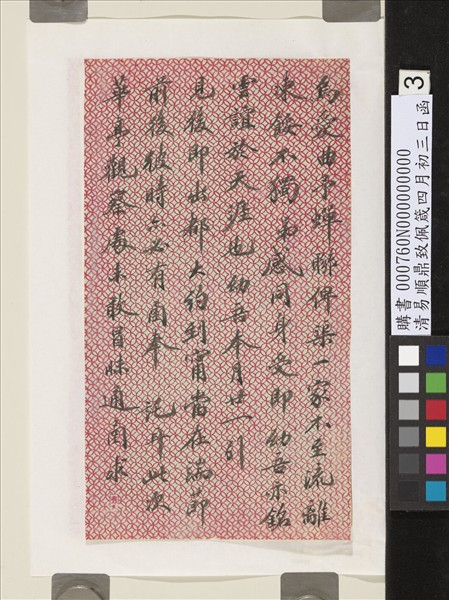 為災曲予蟬聯俾渠一家不至流離
凍餒不獨弟感同身受即幼吾亦銘
雲誼於天涯也幼吾本月廿一引
見後即出都大約到甯當在端節
前後彼時必有函奉 託耳此次
華亭觀察處未敢冒昧通函求
3
購書 000760N000000000
清易順鼎致佩箴四月初三日函